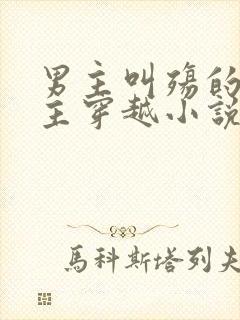 男主叫殇的
主穿越小説
馬科斯塔列夫